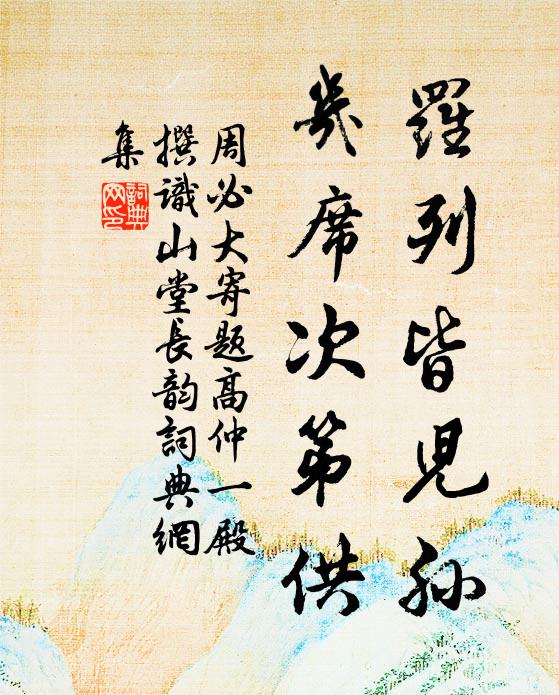 羅列皆兒孫
几席次第供
周必大寄題高仲一殿
撰識山堂長韵詞典網
集
詞典网印